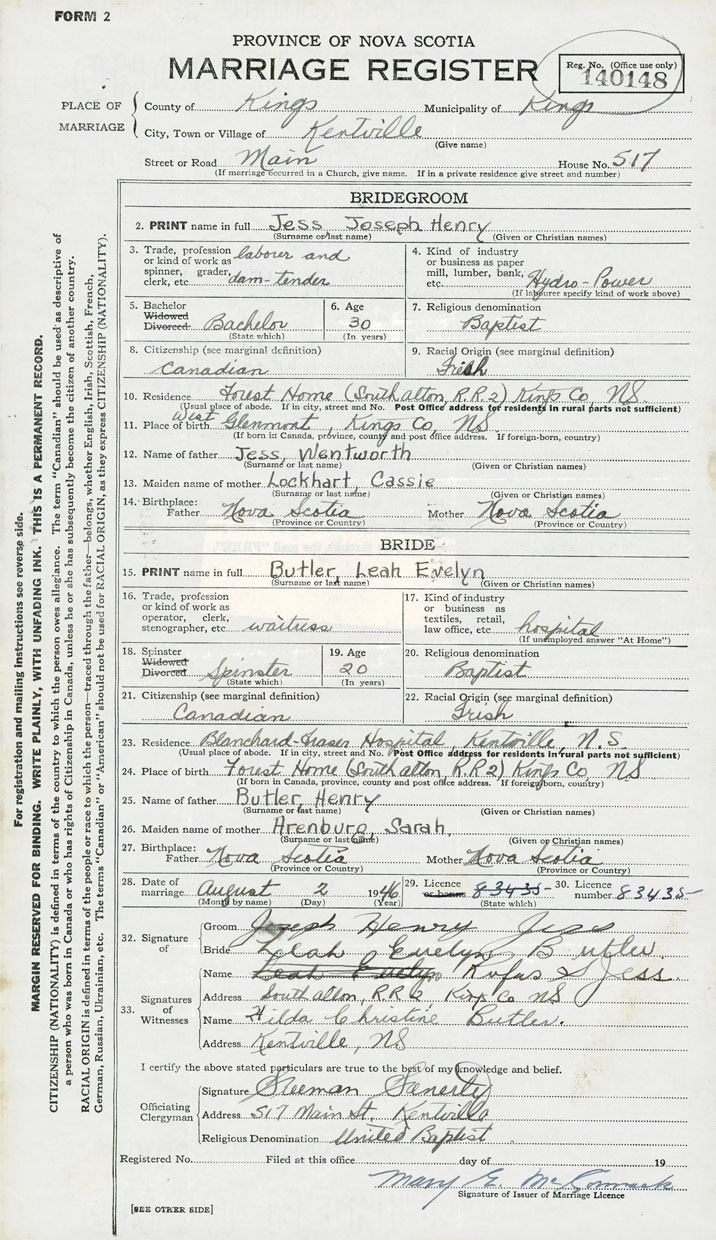 FORM 2
PROVINCE OF NOVA SCOTIA
MARRIAGE REGISTER
Reg. No. (Office use only)
140148
PLACE OF MARRIAGE
County of Kings Municipality of Kings
City, Town or Village of Kentville
(Give name)
Street or Road Main House No. 517
(If marriage occurred in a Church, give name. If in a private residence give street and number)
BRIDEGROOM
2. PRINT name in full Jess Joseph Henry
(Surname or last name) (Given or Christian names)
3. Trade, profession or kind of work as spinner, grader, clerk, etc. laborer and dam-tender
4. Kind of industry or business as paper mill, lumber, bank, etc. Hydro-Power
(If labourer specify kind of work above)
5. Bachelor Widowed Divorced Bachelor
(State which)
6. Age 30
(In years)
7. Religious denomination
Baptist
8. Citizenship (see marginal definition)
Canadian
9. Racial Origin (see marginal definition)
Irish
10. Residence Forest Home (South alton, R.R.2) Kings Co, NS.
(Usual place of abode. If in city, street and No. Post Office address for residents in rural parts not sufficient)
11. Place of birth West Glenmont, Kings Co, NS
(If born in Canada, province, county and post office address. If foreign-born, country)
12. Name of father Jess, Wentworth
(Surname or last name) (Given or Christian names)
13. Maiden name of mother Lockhart, Cassie
(Surname or last name) (Given or Christian names)
14. Birthplace: Father Nova Scotia Mother Nova Scotia
(Province or Country) (Province or Country)
BRIDE
15. PRINT name in full Butler, Leah Evelyn
(Surname or last name) (Given or Christian names)
16. Trade, profession or kind of work as operator, clerk, stenographer, etc. waitress
17. Kind of industry or business as textiles, retail, law office, etc. hospital
(If unemployed answer "At Home")
18. Spinster Widowed Divorced Spinster
(State which)
19. Age 20
(In years)
20. Religious denomination
Baptist
21. Citizenship (see marginal definition)
Canadian
22. Racial Origin (see marginal definition)
Irish
23. Residence Blanchard-Fraser Hospital, Kentville, N.S.
(Usual place of abode. If in city, street and No. Post Office address for residents in rural parts not sufficient)
24. Place of birth Forest Home (South alton, R.R 2) Kings Co, NS
(If born in Canada, province, county and post office address. If foreign-born, country)
25. Name of father Butler, Henry
(Surname or last name) (Given or Christian names)
26. Maiden name of mother Arenburg, Sarah,
(Surname or last name) (Given or Christian names)
27. Birthplace: Father Nova Scotia Mother Nova Scotia
(Province or Country) (Province or Country)
28. Date of marriage August 2 1946
(Month by name) (Day) (Year)
29. Licence or banns 83435
(State which)
30. Licence number 83435
32. Signature of
Groom Joseph Henry Jess
Bride Leah Evelyn Butler.
33. Signatures of Witnesses
Name Leah Evelyn Rufus S Jess.
Address South alton, RR 6 Kings Co NS
Name Hilda Christine Butler.
Address Kentville, NS
I certify the above stated particulars are true to the best of my knowledge and belief.
Officiating Clergyman
Signature Freeman Fenerty
Address 517 Main St. Kentville
Religious Denomination United Baptist
Registered No. Filed at this office day of 19
Mary E. McCormack
Signature of Issuer of Marriage Licence
[SEE OTHER SIDE]
For registration and mailing instructions see reverse side.
MARGIN RESERVED FOR BINDING. WRITE PLAINLY, WITH UNFADING INK. THIS IS A PERMANENT RECORD.
CITIZENSHIP (NATIONALITY) is defined in terms of the country to which the person owes allegiance. The term "Canadian" should be used as descriptive of
a person who was born in Canada or who has rights of Citizenship in Canada, unless he or she has subsequently become the citizen of another country.
RACIAL ORIGIN is defined in terms of the people or race to which the person—traced through the father—belongs, whether English, Irish, Scottish, French,
German, Russian, Ukrainian, etc. The terms "Canadian" or "American" should not be used for RACIAL ORIGIN, as they express CITIZENSHIP (NATIONALITY).